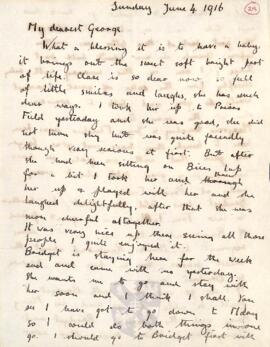 Sunday June 4. 1916
My dearest George
What a blessing it is to have a baby.
it brings out the sweet soft bright part
of life. Clare is so dear now so full
of little smiles and laughs, she has such
dear ways. I took her up to Priors
Field yesterday and she was good, she did
not turn shy but was quite friendly
though very serious at first. But after
she had been sitting on knee
for a bit I took her and threw
her up & played with her and she
laughed delightfully, after that she was
more cheerful altogether.
It was very nice up there seeing all those
people, I quite enjoyed it.
Bridget is staying here for the week
end and came with us yesterday.
She wants me to go and stay with
her soon and I think I shall. You
see I have got to go down to
so I would do both things in one
go. I should go to Bridget first